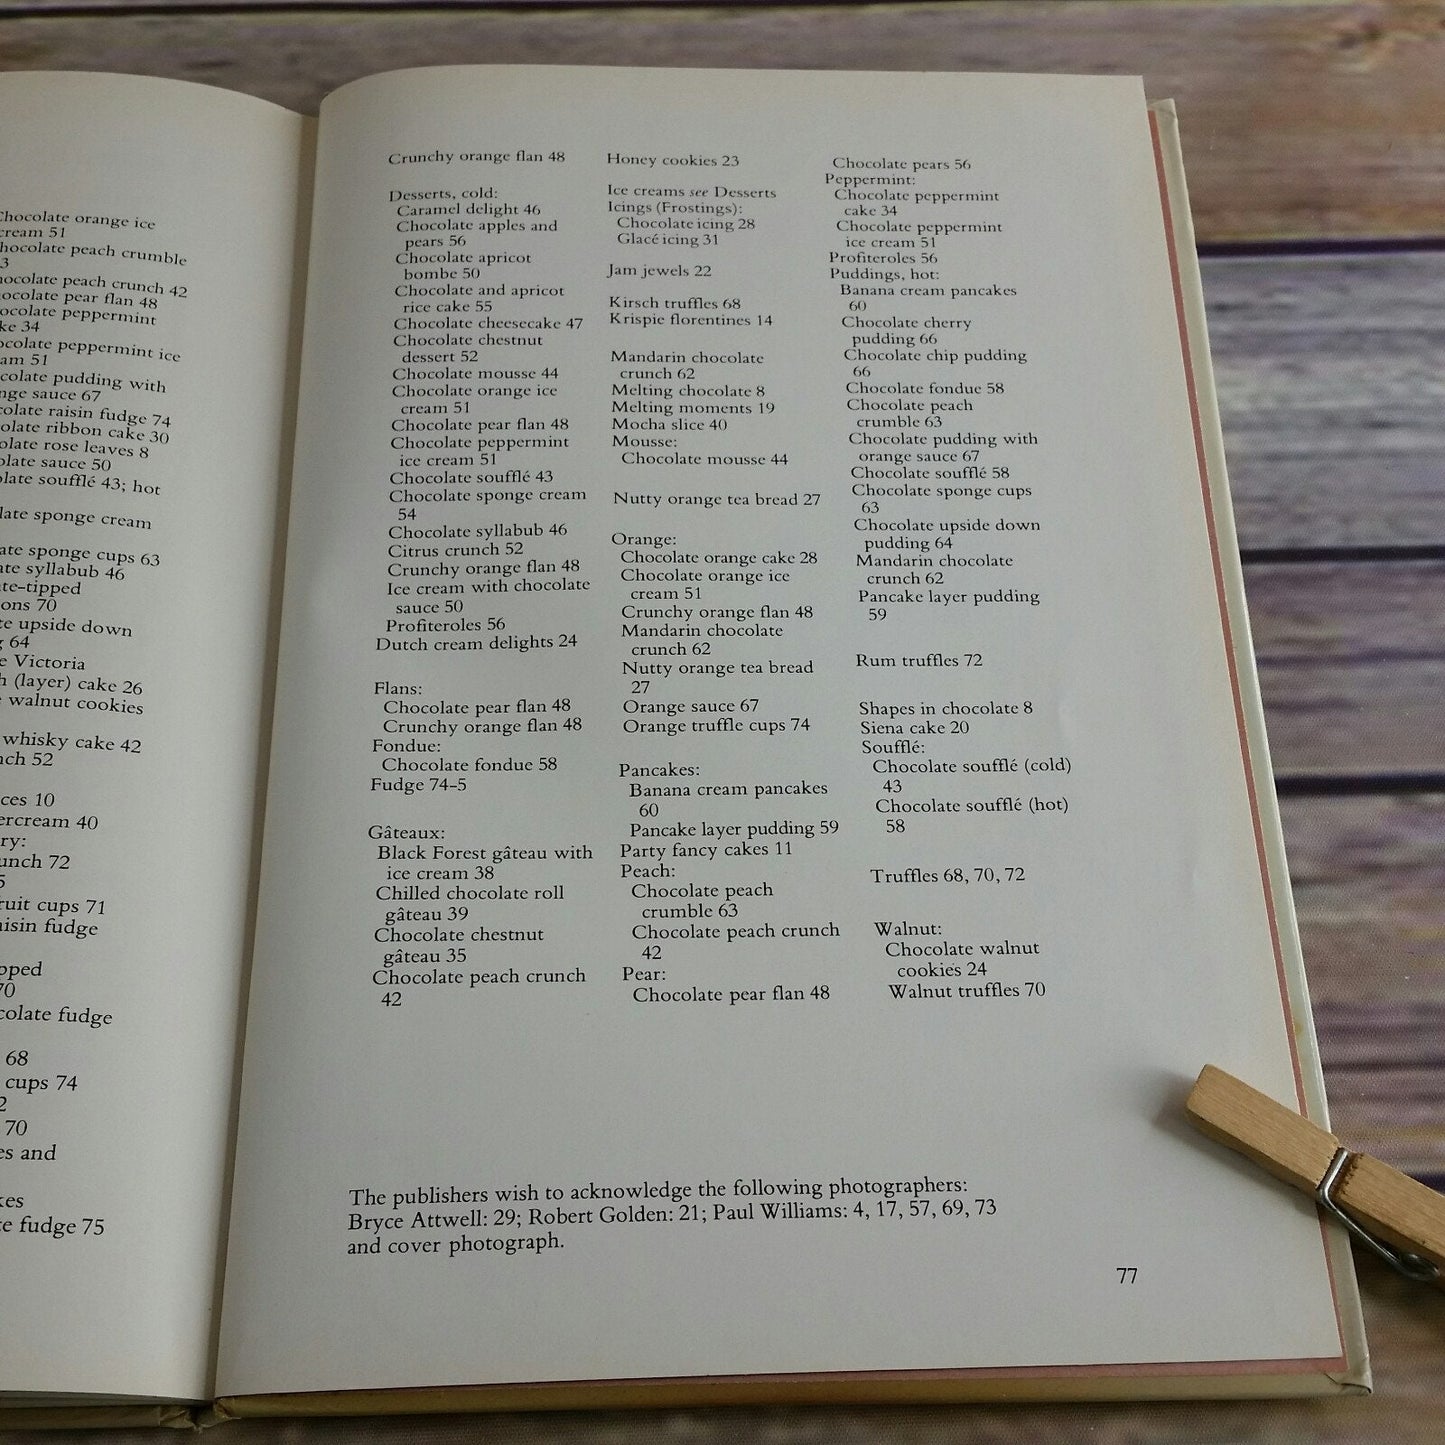 Chocolate orange ice
cream 51
chocolate peach crumble
3
chocolate peach crunch 42
chocolate pear flan 48
chocolate peppermint
cake 34
chocolate peppermint ice
cream 51
chocolate pudding with
orange sauce 67
chocolate raisin fudge 74
chocolate ribbon cake 30
chocolate rose leaves 8
chocolate sauce 50
chocolate soufflé 43; hot
chocolate sponge cream
sponge cups 63
syllabub 46
tipped
70
upside down
64
Victoria
(layer) cake 26
walnut cookies
whisky cake 42
52
10
40
72
cups 71
fudge
70
fudge
68
cups 74
70
and
fudge 75
Crunchy orange flan 48
Desserts, cold:
Caramel delight 46
Chocolate apples and
pears 56
Chocolate apricot
bombe 50
Chocolate and apricot
rice cake 55
Chocolate cheesecake 47
Chocolate chestnut
dessert 52
Chocolate mousse 44
Chocolate orange ice
cream 51
Chocolate pear flan 48
Chocolate peppermint
ice cream 51
Chocolate soufflé 43
Chocolate sponge cream
54
Chocolate syllabub 46
Citrus crunch 52
Crunchy orange flan 48
Ice cream with chocolate
sauce 50
Profiteroles 56
Dutch cream delights 24
Flans:
Chocolate pear flan 48
Crunchy orange flan 48
Fondue:
Chocolate fondue 58
Fudge 74-5
Gâteaux:
Black Forest gâteau with
ice cream 38
Chilled chocolate roll
gâteau 39
Chocolate chestnut
gâteau 35
Chocolate peach crunch
42
Honey cookies 23
Ice creams see Desserts
Icings (Frostings):
Chocolate icing 28
Glacé icing 31
Jam jewels 22
Kirsch truffles 68
Krispie florentines 14
Mandarin chocolate
crunch 62
Melting chocolate 8
Melting moments 19
Mocha slice 40
Mousse:
Chocolate mousse 44
Nutty orange tea bread 27
Orange:
Chocolate orange cake 28
Chocolate orange ice
cream 51
Crunchy orange flan 48
Mandarin chocolate
crunch 62
Nutty orange tea bread
27
Orange sauce 67
Orange truffle cups 74
Pancakes:
Banana cream pancakes
60
Pancake layer pudding 59
Party fancy cakes 11
Peach:
Chocolate peach
crumble 63
Chocolate peach crunch
42
Pear:
Chocolate pear flan 48
Chocolate pears 56
Peppermint:
Chocolate peppermint
cake 34
Chocolate peppermint
ice cream 51
Profiteroles 56
Puddings, hot:
Banana cream pancakes
60
Chocolate cherry
pudding 66
Chocolate chip pudding
66
Chocolate fondue 58
Chocolate peach
crumble 63
Chocolate pudding with
orange sauce 67
Chocolate soufflé 58
Chocolate sponge cups
63
Chocolate upside down
pudding 64
Mandarin chocolate
crunch 62
Pancake layer pudding
59
Rum truffles 72
Shapes in chocolate 8
Siena cake 20
Soufflé:
Chocolate soufflé (cold)
43
Chocolate soufflé (hot)
58
Truffles 68, 70, 72
Walnut:
Chocolate walnut
cookies 24
Walnut truffles 70
The publishers wish to acknowledge the following photographers:
Bryce Attwell: 29; Robert Golden: 21; Paul Williams: 4, 17, 57, 69, 73
and cover photograph.
77